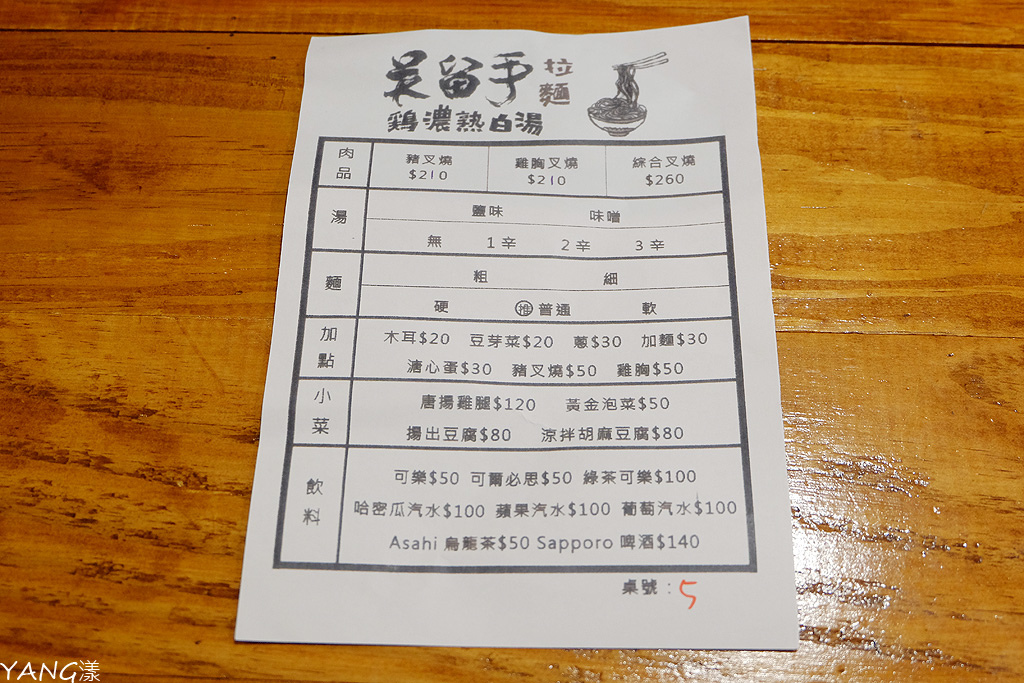 吳留手 拉麵
鶏濃熟白湯
肉品 豬叉燒 雞胸叉燒 綜合叉燒
$210 $210 $260
湯 鹽味 味噌
無 1辛 2辛 3辛
麵 粗 細
硬 推 普通 軟
加點 木耳$20 豆芽菜$20 蔥$30 加麵$30
溏心蛋$30 豬叉燒$50 雞胸$50
小菜 唐揚雞腿$120 黃金泡菜$50
揚出豆腐$80 涼拌胡麻豆腐$80
飲料 可樂$50 可爾必思$50 綠茶可樂$100
哈密瓜汽水$100 蘋果汽水$100 葡萄汽水$100
Asahi 烏龍茶$50 Sapporo 啤酒$140
桌號：5
YANG漾